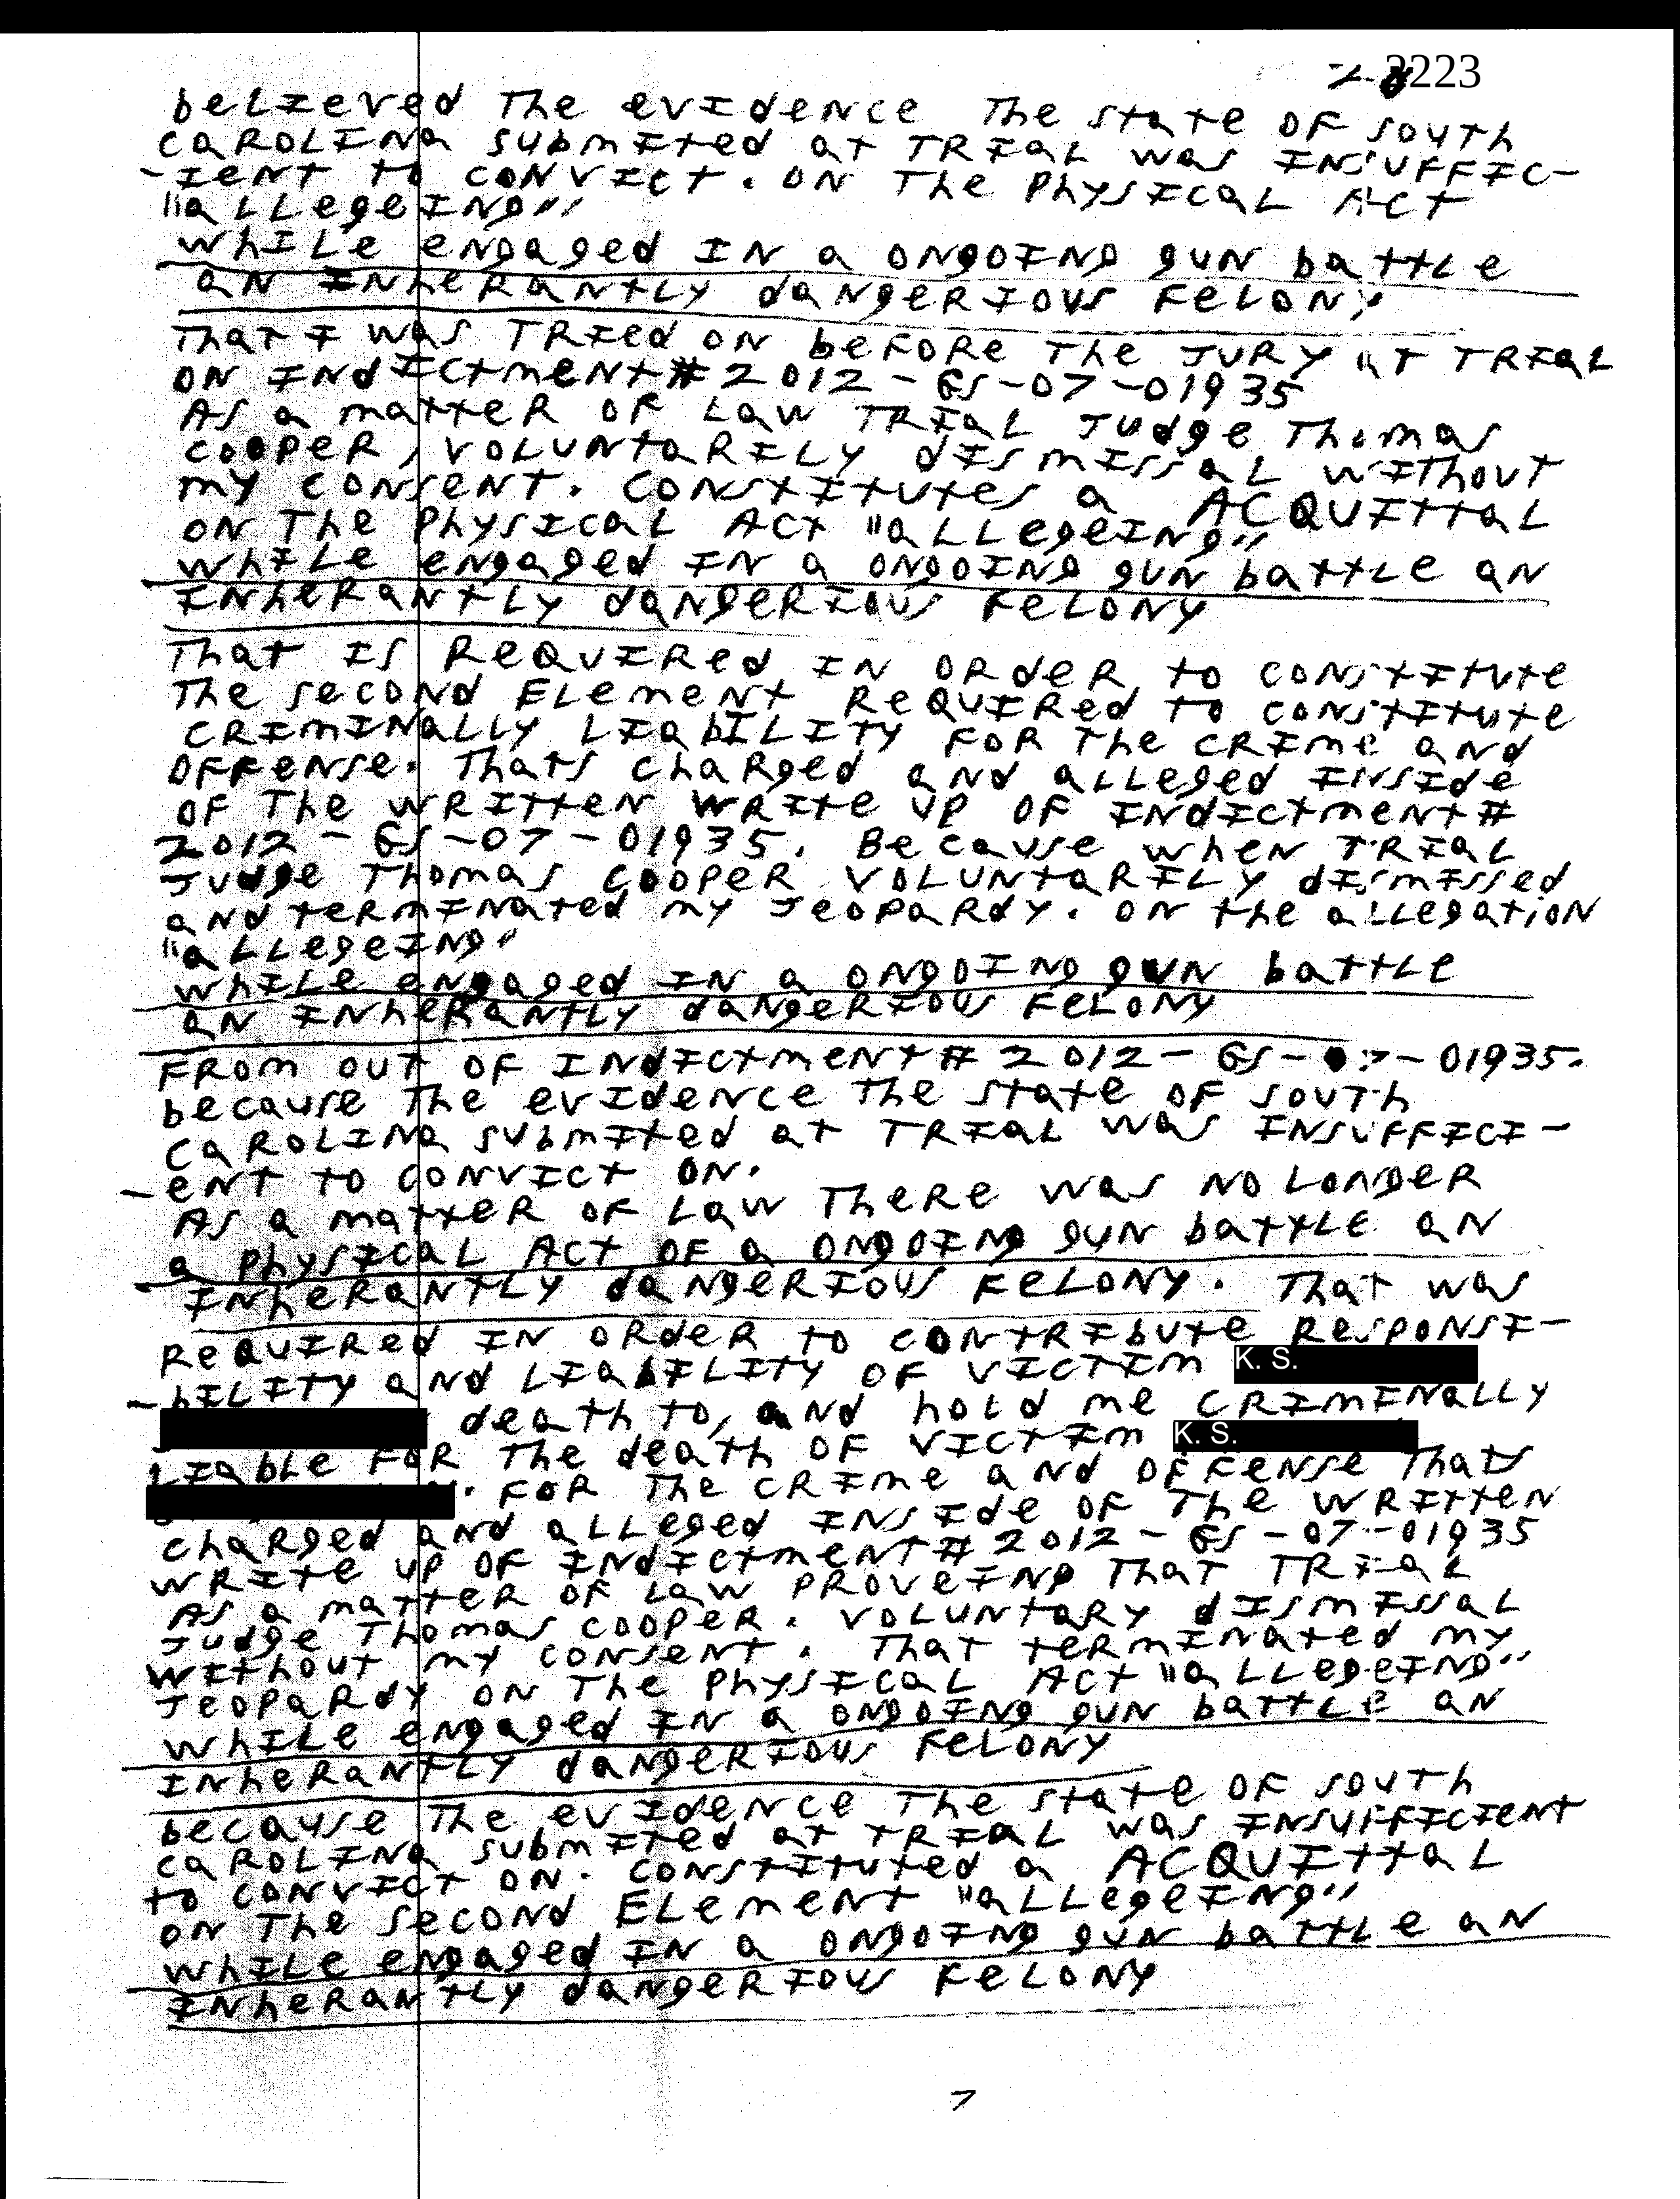 3223
believed The evidence The state of south
CAROLINA submited at TRIAL was INSUFFIC-
-IENT to CONVICT. ON The Physical Act
"allegeing"
while engaged IN a ongoing gun battle
an INherantly dangerious Felony
That I was TRIed on beFORe The JURY at TRIAL
ON INdICtment# 2012-GS-07-01935
As a matter OF Law TRIAL Judge Thomas
COOPER, VOLUNtaRILY dismissal without
my consent. Constitutes a ACQUITTAL
ON The Physical Act "allegeing"
while engaged IN a ongoing gun battle an
INherantly dangerious Felony
That IS ReQuired IN ORder to constitute
The second Element Required to constitute
CRIMINALLY LIABILITY FOR The CRIME and
OFFENSE. Thats charged and alleged INSIde
OF The WRITTEN WRITE UP OF INdICtment#
2012-GS-07-01935. Because when TRIAL
Judge Thomas COOPER VOLUNtaRILY dismissed
and terminated my Jeopardy. ON the allegation
"allegeing"
while engaged IN a ongoing gun battle
an INherantly dangerious Felony
FROM OUT OF INdICtment# 2012-GS-07-01935.
because The evidence The state OF SOUTH
CAROLINA submited at TRIAL was INSUFFICI-
-ENT TO CONVICT ON.
As a matter OF Law There was NO LONGER
a physical Act OF a ongoing gun battle an
INherantly dangerious Felony. That was
Required IN ORder to CONTRIbute Responsi-
-bility and LIABILITY OF VICTIM K. S.
death to, and hold me CRIMINALLY
LIABLE FOR The death OF VICTIM K. S.
. FOR The CRIME and OFFENSE Thats
charged and alleged INSIde OF The WRITTEN
WRITE UP OF INdICtment# 2012-GS-07-01935
As a matter OF Law PROVEING That TRIAL
Judge Thomas COOPER. VOLUNTARY dismissal
without my consent. That terminated my
Jeopardy ON The Physical Act "allegeing"
while engaged IN a ongoing gun battle an
INherantly dangerious Felony
because The evidence The state OF SOUTH
CAROLINA submited at TRIAL was INSUFFICIENT
to CONVICT ON. Constituted a ACQUITTAL
ON The Second Element "allegeing"
while engaged IN a ongoing gun battle an
INherantly dangerious Felony
7